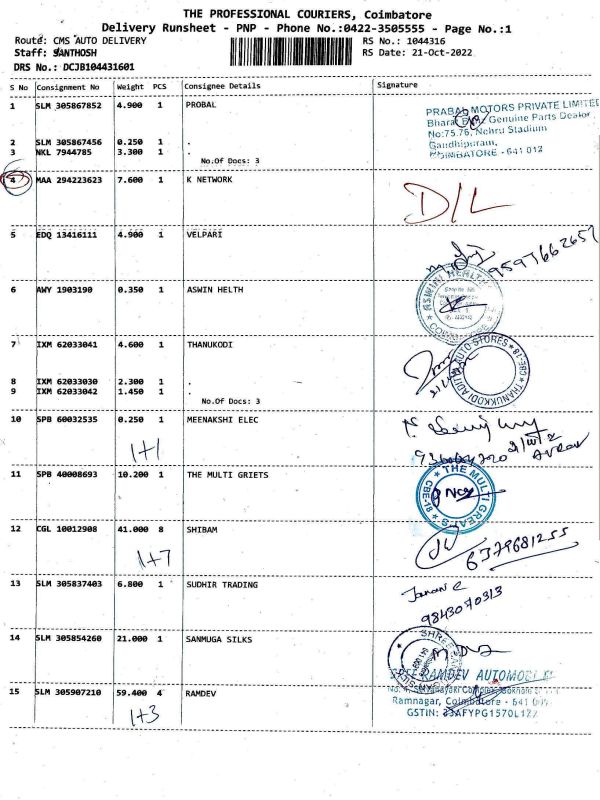 THE PROFESSIONAL COURIERS, Coimbatore
Delivery Runsheet - PNP - Phone No.:0422-3505555 - Page No.:1
Route: CMS AUTO DELIVERY RS No.: 1044316
Staff: SANTHOSH RS Date: 21-Oct-2022
DRS No.: DCJB104431601
S No Consignment No Weight PCS Consignee Details Signature
1 SLM 305867852 4.900 1 PROBAL
MOTORS PRIVATE LIMITED
Genuine Parts Dealor
No:75.76, Nehru Stadium
Gandhipuram,
COIMBATORE - 641 012
2 SLM 305867456 0.250 1 .
3 NKL 7944785 3.300 1 .
No.Of Docs: 3
4 MAA 294223623 7.600 1 K NETWORK
D/L
5 EDQ 13416111 4.900 1 VELPARI
9597662657
6 AWY 1903190 0.350 1 ASWIN HELTH
ASWINI HEALTH
7 IXM 62033041 4.600 1 THANUKODI
THANUKKODI ADITYA AUTO STORES * CBE-18 *
8 IXM 62033030 2.300 1 .
9 IXM 62033042 1.450 1 .
No.Of Docs: 3
10 SPB 60032535 0.250 1 MEENAKSHI ELEC
1+1
11 SPB 40008693 10.200 1 THE MULTI GRIETS
* THE MULTI GREATS * CBE-18
12 CGL 10012908 41.000 8 SHIBAM
1+7
6379681255
13 SLM 305837403 6.800 1 SUDHIR TRADING
9843070313
14 SLM 305854260 21.000 1 SANMUGA SILKS
SHREE
15 SLM 305907210 59.400 4 RAMDEV
1+3
SREE RAMDEV AUTOMOBILE
Ramnagar, Coimbatore - 641
GSTIN: 33AFYPG1570L1Z